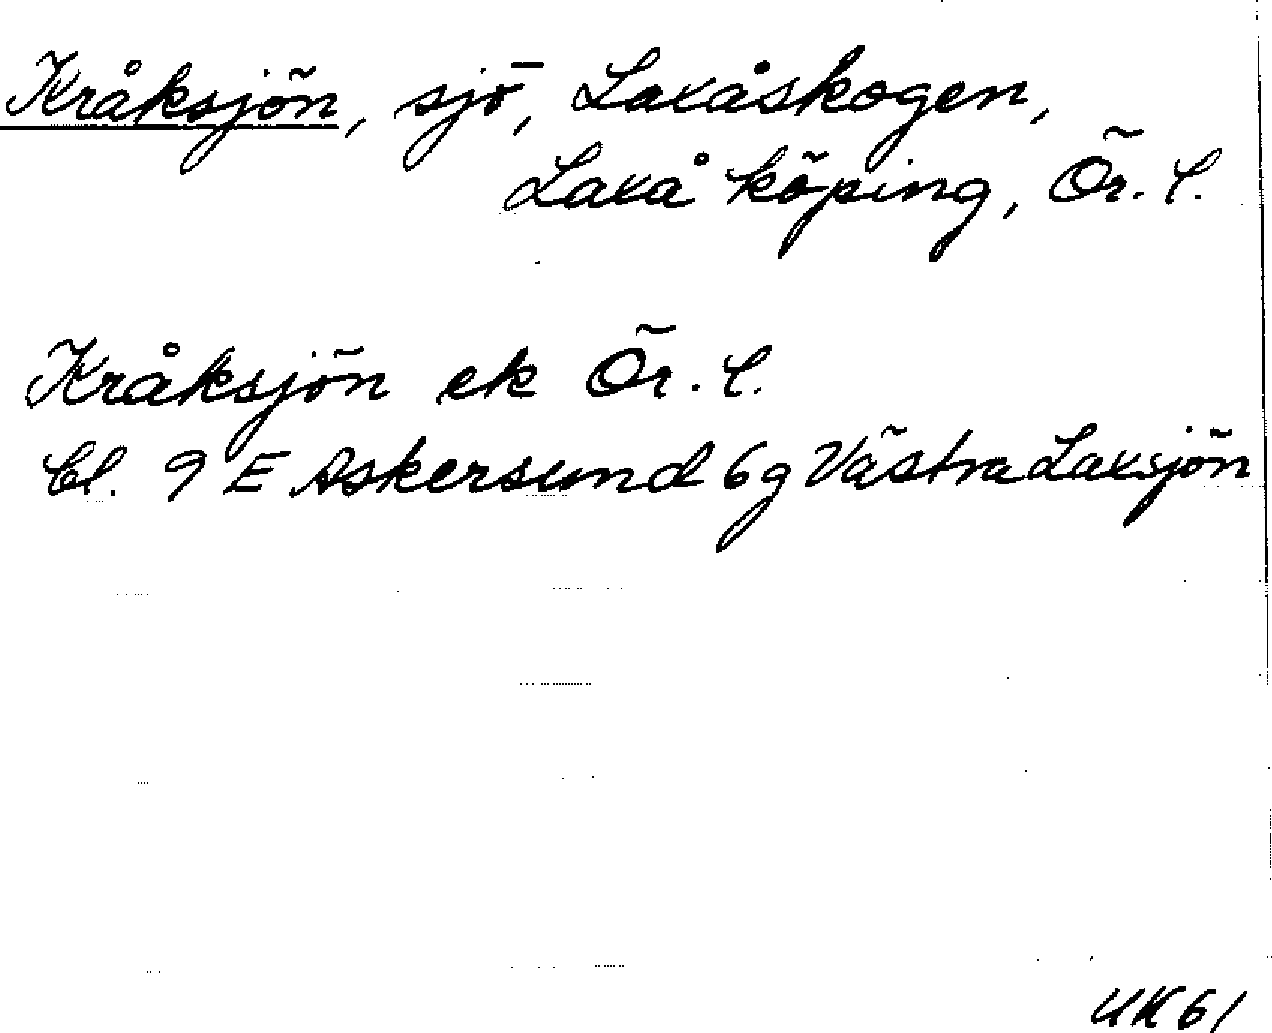 Kråksjön, sjö, Laxåskogen,
Laxå köping, Ör. l.
Kråksjön ek Ör. l.
Bl. 9 E Askersund 6g Västra Laxsjön
UK61